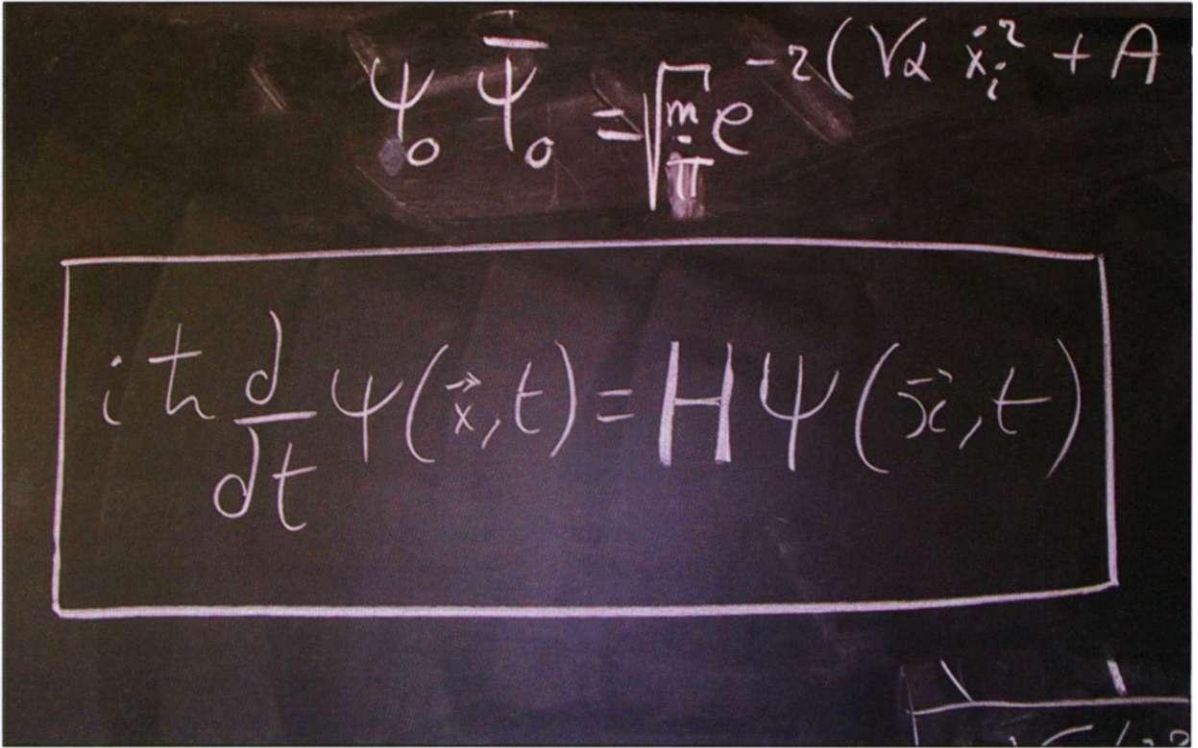 ψ₀ ψ̅₀ = √(m/π) e^(-2(√α ẋᵢ² + A
iħ d/dt ψ(x⃗,t) = H ψ(x⃗,t)